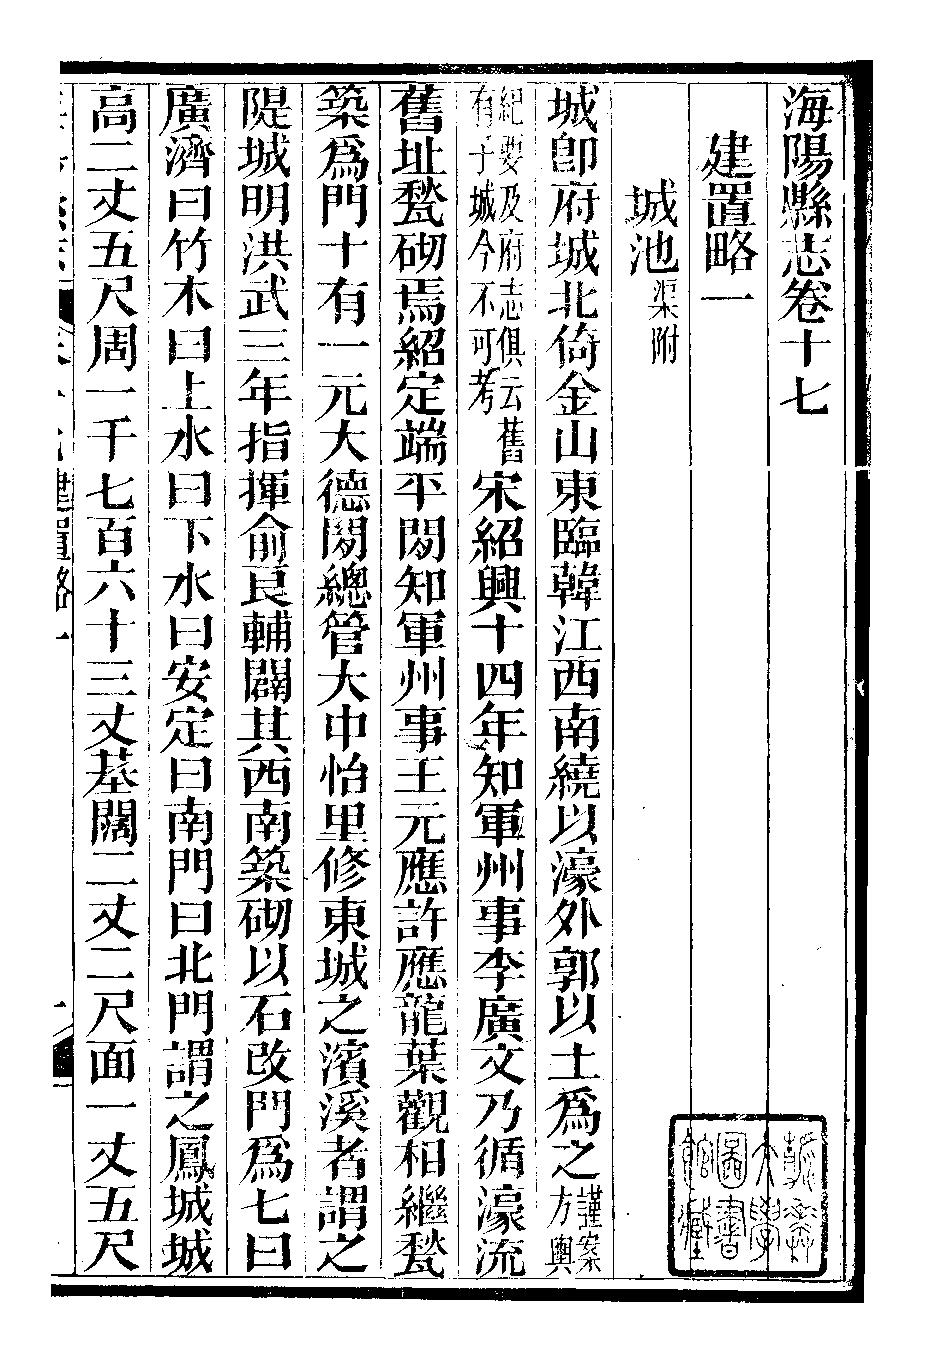 海陽縣志卷十七
建置略一
城池渠附
城卽府城北倚金山東臨韓江西南繞以濠外郭以土爲之謹案方輿
紀要及府志俱云舊有子城今不可考宋紹興十四年知軍州事李廣文乃循濠流
舊址甃砌焉紹定端平閒知軍州事王元應許應龍葉觀相繼甃
築爲門十有一元大德閒總管大中怡里修東城之濱溪者謂之
隄城明洪武三年指揮俞良輔闢其西南築砌以石改門爲七曰
廣濟曰竹木曰上水曰下水曰安定曰南門曰北門謂之鳳城城
高二丈五尺周一千七百六十三丈基闊二丈二尺面一丈五尺
建置略一
大學
圖書
館藏